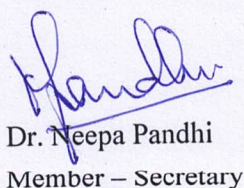 Dr. Neepa Pandhi
Member – Secretary